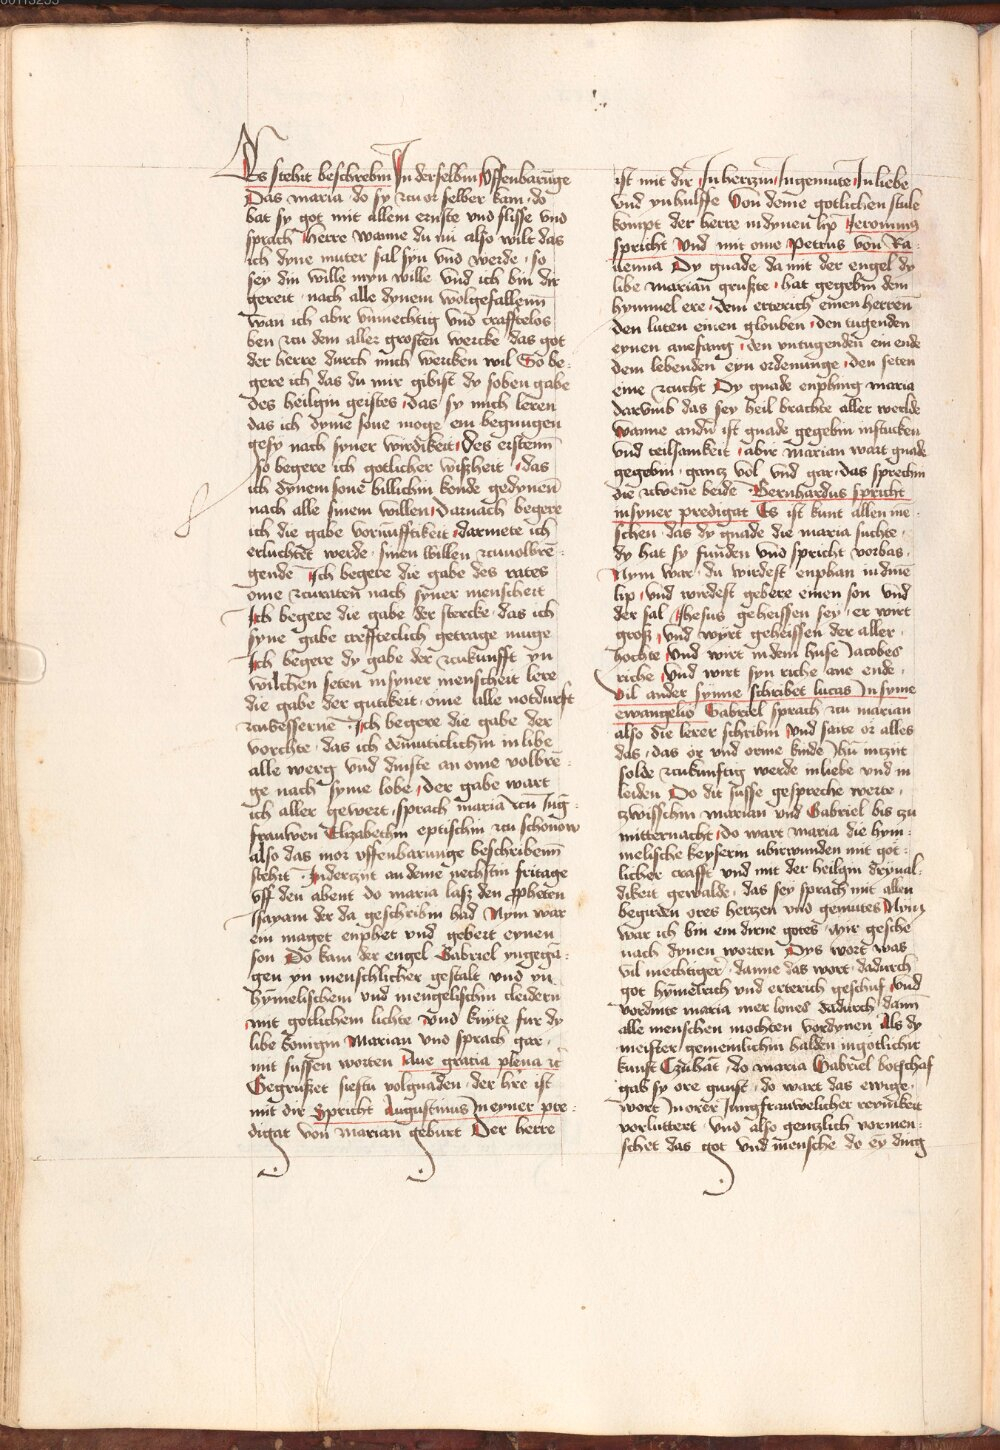 Es stehit beschrebin In derselbin Uffenbarũge
Das maria do sy zcu or selber kam do
bat sy got mit allem ernste und flisse und
sprach herre wanne du nü also wilt das
ich dyne muter sal syn und werde so
sey din wille myn wille Und ich bin dir
gereit nach alle dynem wolgefallenn
wan ich abir vnmechtig vnd crafftelos
ben zcu dem aller grosten wercke das got
der herre durch mich wercken wil So be-
gere ich das du mir gibist dy soben gabe
des heilgin geistes das sy mich leren
das ich dyme sone moge ein begnugen
gesy nach syner wirdikeit Des erstenn
so begere ich gotlicher wißheit das
ich dynem sone billichin konde gedynen
nach alle sinem willen Darnach begere
ich die gabe vornũfftikeit darmete ich
erluchtet werde sinen willen zcuuolbrẽ-
gende Ich begere die gabe des rates
ome zcuraten nach syner menscheit
Ich begere die gabe der stercke das ich
syne gabe crefftteclich getrage muge
Ich begere dy gabe der zcukunfft yn
wilchen seten in syner menscheit lere
die gabe der gutikeit ome alle notdurfft
zcubessernẽ Ich begere die gabe der
vorchte das ich demüticlichin in libe
alle werg vnd dinste an ome volbrẽ-
ge nach syme lobe Der gabe wart
ich aller gewert sprach maria zcu Jũg-
frauwen Elizabethin eptischin zcu schonow
also das mor uffenbarunge beschribenn
stehit Inderzcit an deme nechstin fritage
Uff den abent do maria laß den ppheten
Isayam der da geschribin had Nym war
ein maget enphet vnd gebert eynen
son Do kam der engel Gabriel yngegã-
gen yn menschlicher gestalt vnd yn
hymelischem vnd mengelischin cleidern
mit gotlichem lichte Und knyte fur dy
libe konigin Marian vnd sprach gar
mit sussen worten Aue gracia plena rc
Gegrußet siestu volgnaden der hre ist
mit dir Spricht Augustinus In eyner pre-
digat von marian geburt Der herre
ist mit dir In hertzin Ingemute In liebe
vnd yn hulffe Von deme gotlichen stule
kompt der herre in dynen lip Jeronimus
spricht Und mit ome Petrus von Ra-
uenna Dy gnade da mit der engel dy
libe marian grußte hat gegebin dem
hymmel ere dem erterich einen herren
den luten einen glouben den tugenden
eynen anefang den vntugenden ein ende
dem lebenden eyn ordenunge den seten
eine zcucht Dy gnade enphing maria
darvmb das sey heil brachte aller werlde
Wanne andn̄ ist gnade gegebin instucken
vnd teilsamkeit abir marian wart gnade
gegebin gantz vol vnd gar das sprechin
die zcwene beide Bernhardus spricht
in syner predigat Es ist kunt allen me-
schen das dy gnade die maria suchte
dy hat sy funden vnd spricht vorbas
Nym war du wirdest enphan in dinē
lip vnd wirdest gebere einen son vnd
der sal Jhesus geheissen sey er wirt
groß vnd wyrt geheissen der aller
hochte Und wirt in dem huse Jacobes
riche Und wirt syn riche ane ende
Vil ander synne schribet lucas In syme
ewangelio Gabriel sprach zcu marian
also die lerer schribin Und saite or alles
das das or vnd orme kinde Jhū inczut
solde zcukunftig werde in liebe und in
leiden Do dit susse gespreche werte
tzwisschin marian vnd Gabriel bis zcu
mitternacht Do wart maria die hym-
melische keyserin vbirwunden mit got-
licher crafft vnd mit der heilgin dryual-
dikeit gewalde das sey sprach mit allen
begirden ores hertzen vnd gemutes Nym
war ich bin ein dirne gotes mir gesche
nach dynen worten Dys wort was
vil mechtiger danne das wort dadurch
got hymelrich vnd erterich geschuf Und
vordinte maria mer lones dadurch dann
alle menschen mochten vordynen Als dy
meister gemeinlichin halden in gotlichir
kunst Czuhāt do maria Gabriel botschaf
gab sy ore gunst do wart das ewige
wort In orer Jungfrauwelicher reynikeit
vorluttert vnd also gentzlich vormen-
schet das got vnd mensche do ey ding